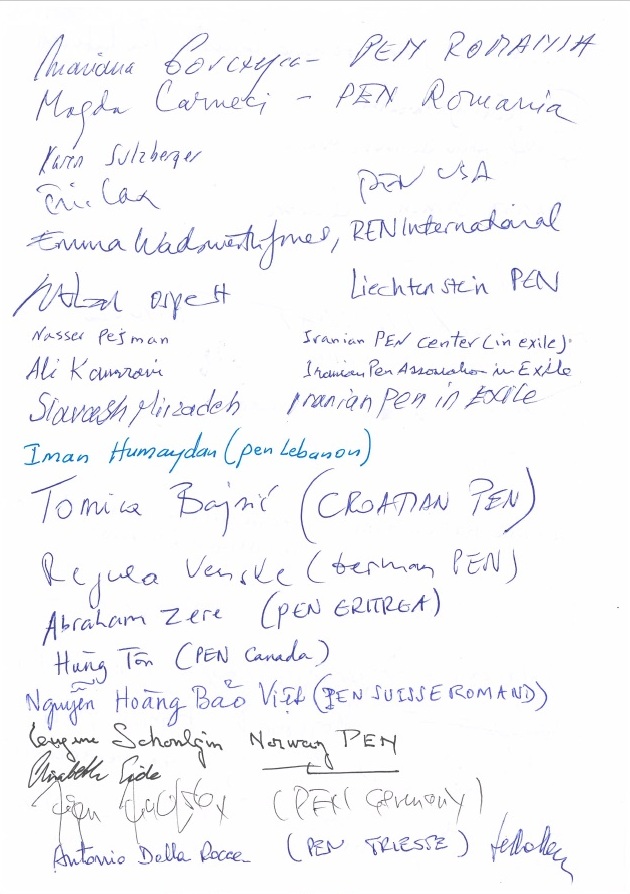 Mariana – PEN ROMANIA
Magda Carneci – PEN Romania
Karen Sulzberger
Eric Lax PEN USA
Emma Wadsworth-Jones, PEN International
ospelt Liechtenstein PEN
Nasser Pejman Iranian PEN Center (in exile).
Ali Kamrani Iranian Pen Association in Exile
Siavash Mirzadeh Iranian Pen in Exile
Iman Humaydan (pen Lebanon)
Tomica Bajsić (CROATIAN PEN)
Regula Venske (German PEN)
Abraham Zere (PEN ERITREA)
Hung Tôn (PEN Canada)
Nguyễn Hoàng Bảo Việt (PEN SUISSE ROMAND)
Eugene Schoulgin Norway PEN
Elisabeth Eide
(PEN Germany)
Antonio Della Rocca (PEN TRIESTE)